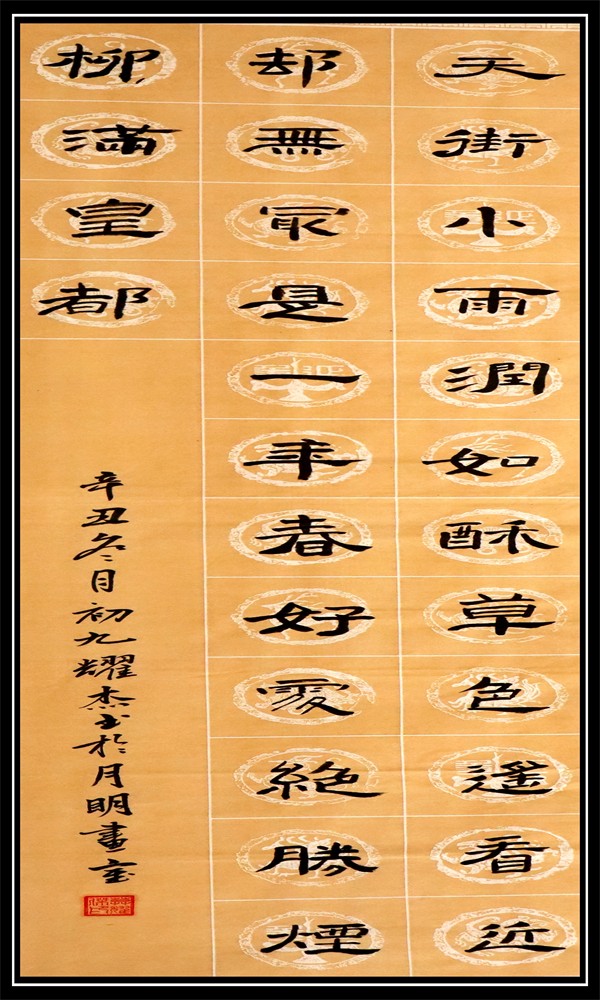 天街小雨潤如酥草色遙看近
却無冣是一年春好處絕勝煙
柳滿皇都
辛丑冬月初九耀杰书於月明畫室